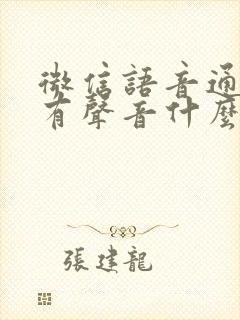 微信語音通
有聲音什麼
張建龍